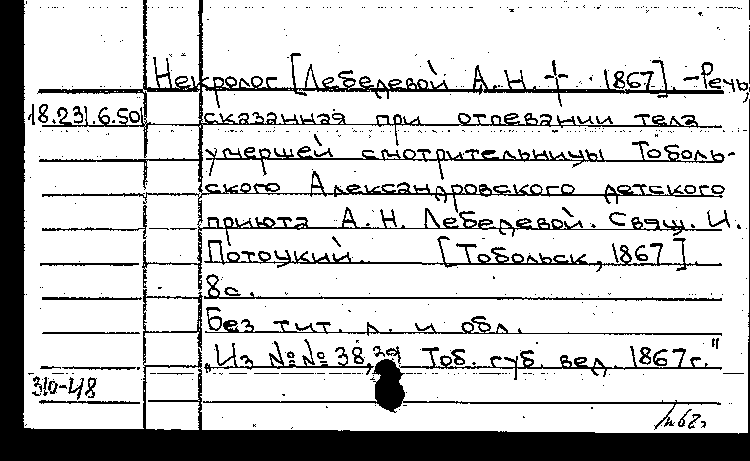 Некролог [Лебедевой А.Н. † 1867]. – Речь,
18.231.6.50 сказанная при отпевании тела
умершей смотрительницы Тоболь-
ского Александровского детского
приюта А.Н. Лебедевой. Свящ. И.
Потоцкий. [Тобольск, 1867].
8с.
Без тит. л. и обл.
„Из №№ 38, 39 Тоб. губ. вед. 1867г."
310-48